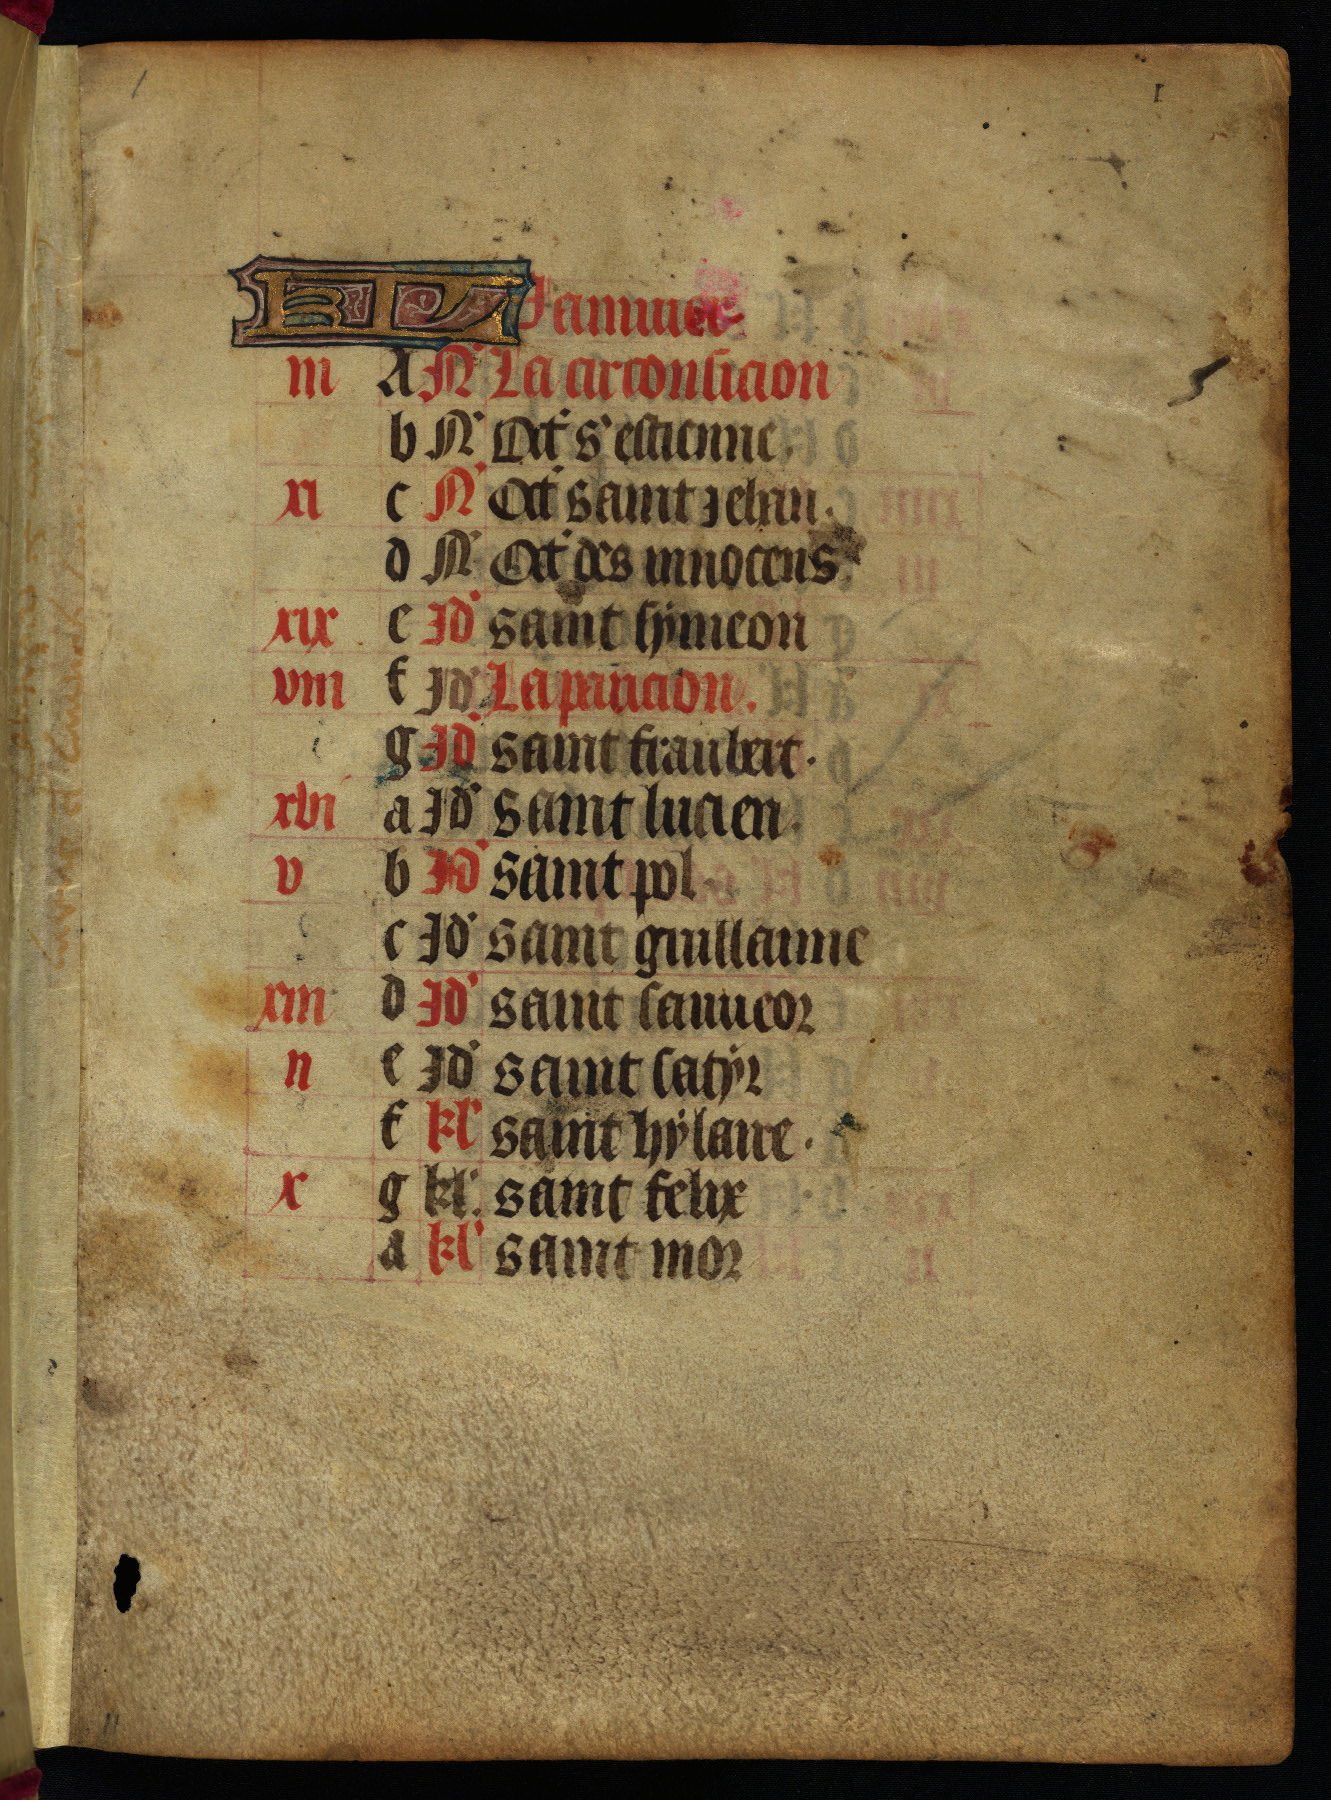 KL Januier
iii A N' La circonsicion
b N' Oct' s' estienne.
xi c N' Oct' saint Jehan.
d N' Oct' des innocens.
xix e Id' saint symeon
viii f Id' La paricion.
g Id' saint fraubert.
xvi a Id' saint lucien.
v b Id' saint pol
c Id' saint guillaume
xiii d Id' saint sauueor
ii e Id' saint satyr
f kl' saint hylaire.
x g kl'. saint felix
a kl' saint mor